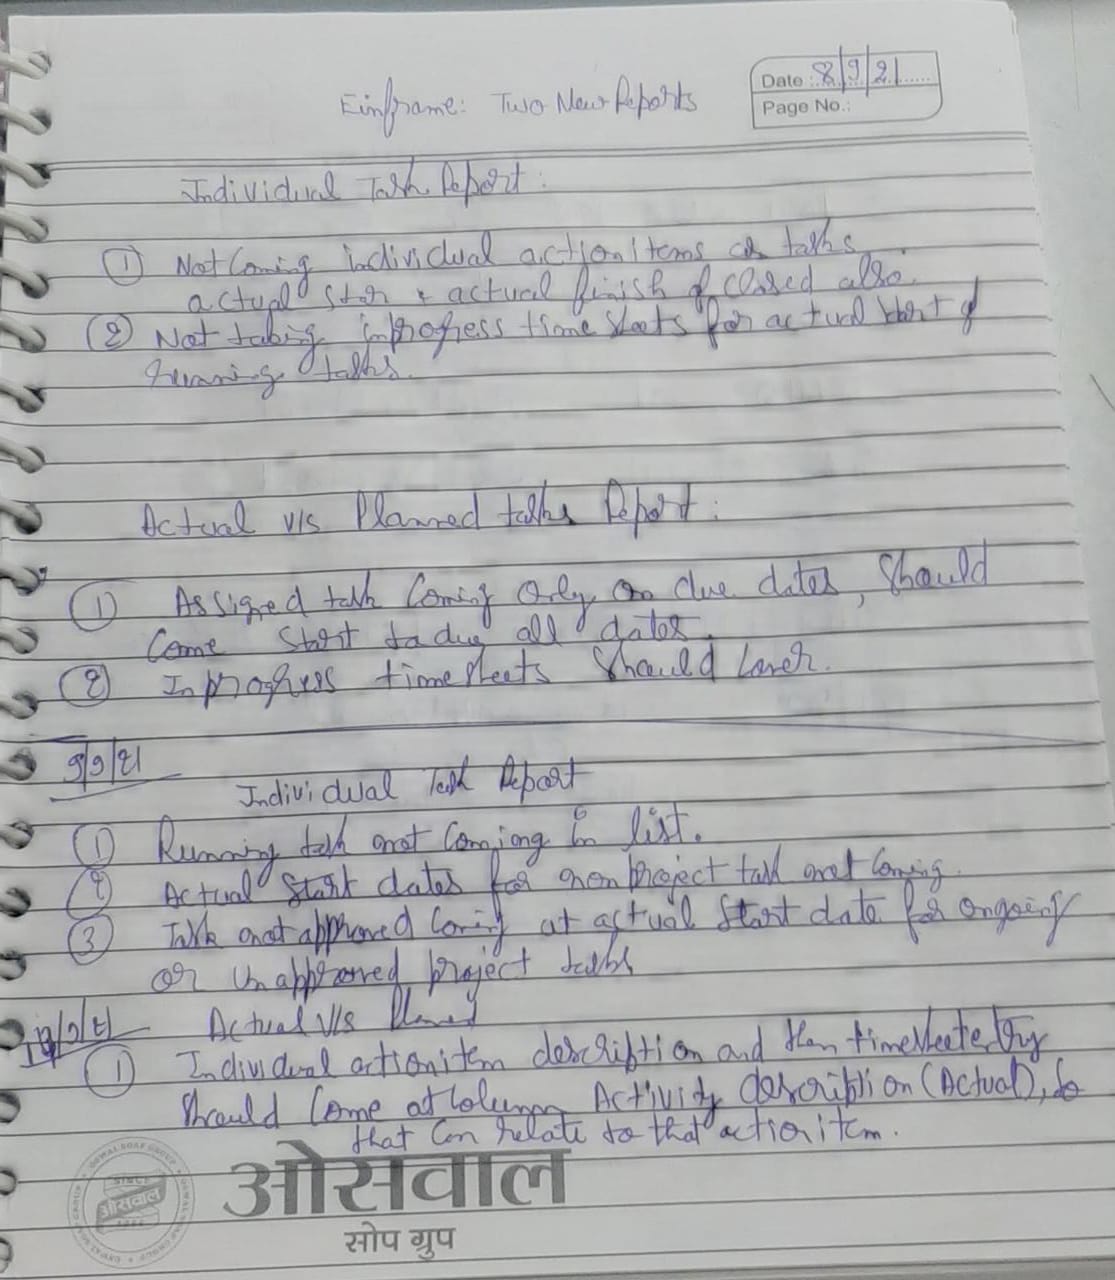 Date : 8/9/21
Page No.:
Einframe: Two New Reports
Individual Task Report :
① Not Coming individual action items as tasks
actual start & actual finish of closed also.
② Not taking inprogress time sheets for actual start of
running tasks.
Actual v/s Planned tasks Report :
① Assigned task Coming Only on due dates, Should
Come Start to due all dates.
② Inprogress timesheets Should
9/9/21
Individual Task Report
① Running task not Coming in list.
② Actual Start dates for non project task not Coming.
③ Task not approved Coming at actual Start date for ongoing
or unapproved project tasks
Actual V/s Planned
① Individual actionitem description and then timesheet
Should Come at Column Activity description (Actual), So
that Can relate to that actionitem.
ओसवाल
सोप ग्रुप